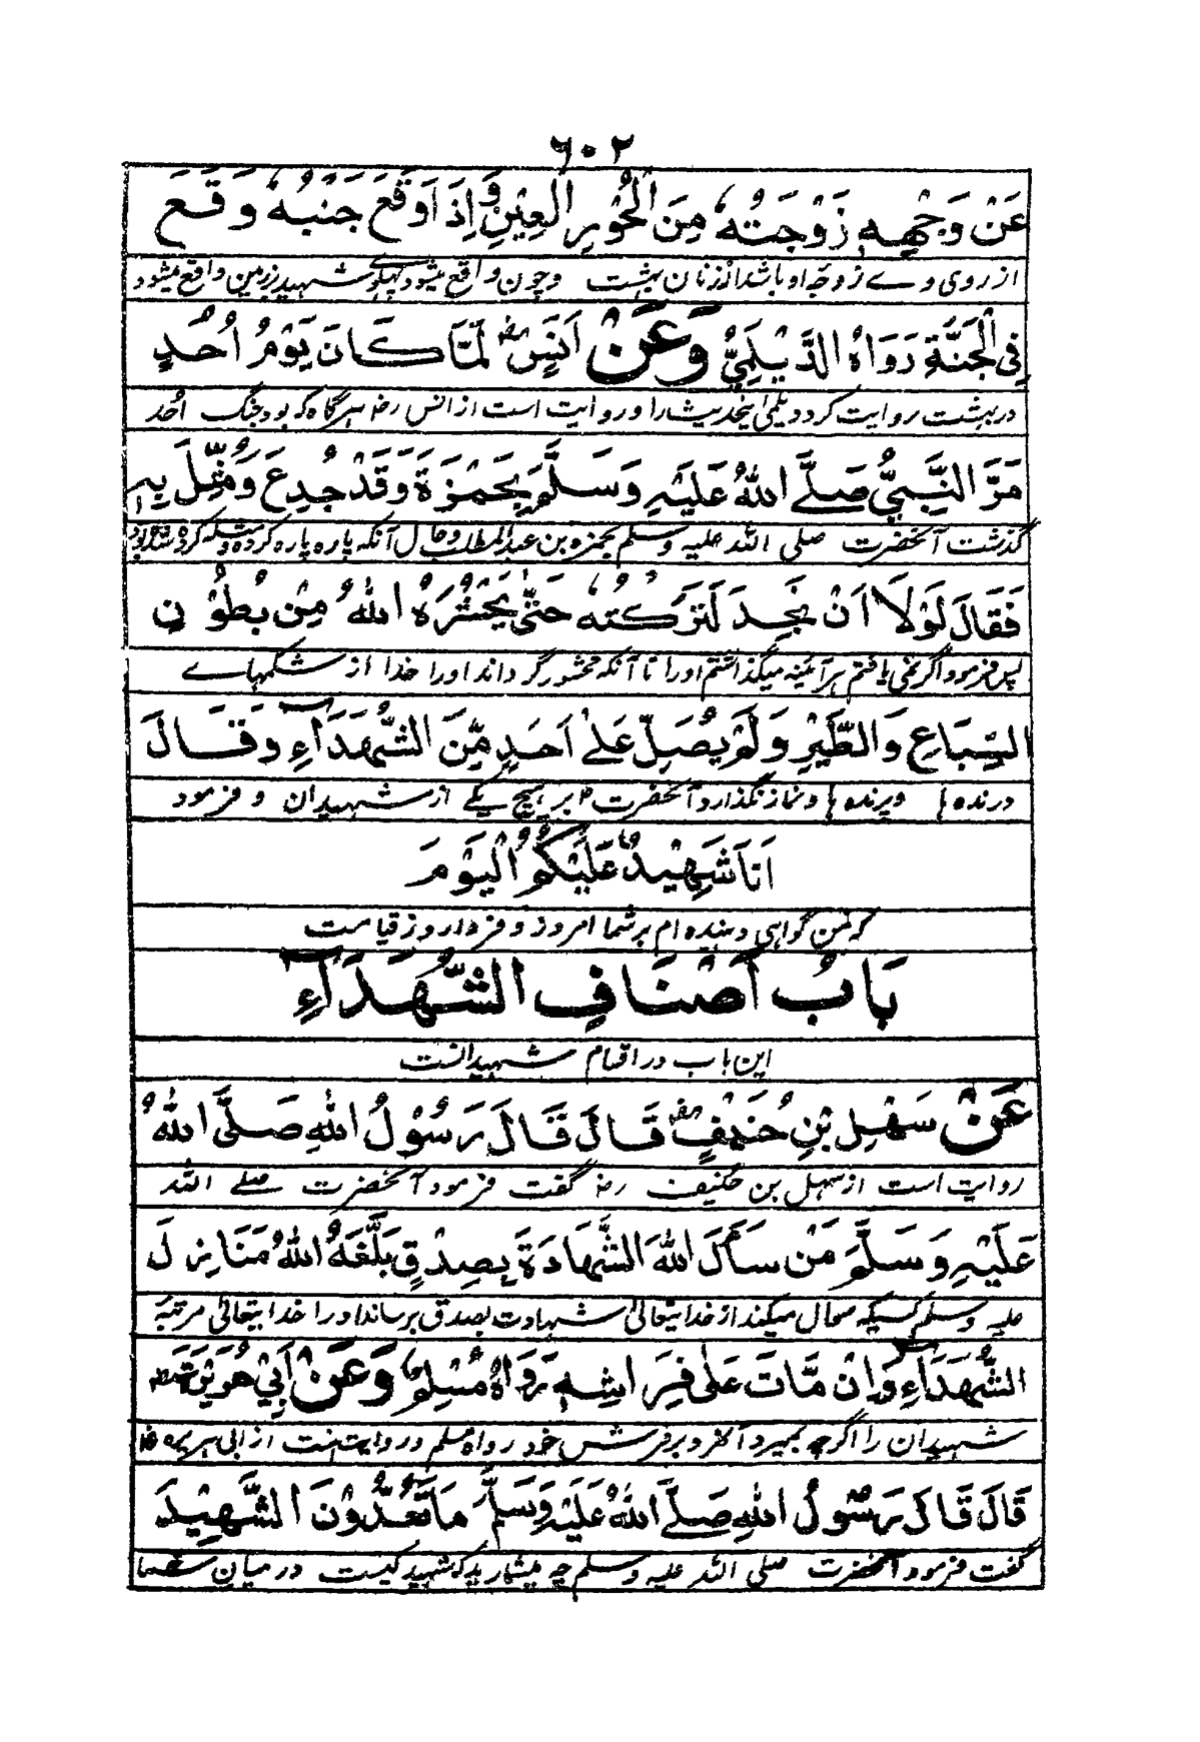 ۶۰۲
عَنْ وَجْهِهٖ زَوْجَتُهٗ مِنَ الْحُوْرِ الْعِيْنِ وَاِذَا وَقَعَ جَنْبُهٗ وَقَعَ
از روی وے زوجہ او باشد از زنان بہشت وچون واقع میشود پہلوے شہید بر زمین واقع میشود
فِی الْجَنَّةِ رَوَاهُ الدَّيْلَمِیُّ وَعَنْ اَنَسٍ رضؓ لَمَّا كَانَ يَوْمُ اُحُدٍ
در بہشت روایت کرد دیلمی اینحدیث را و روایت است از انس رضہ ہرگاہ کہ بود جنگ احد
مَرَّ النَّبِیُّ صَلَّے اللهُ عَلَيْهِ وَسَلَّمَ بِحَمْزَةَ وَقَدْ جُدِعَ وَمُثِّلَ بِهٖ
گذشت آنحضرت صلی اللہ علیہ وسلم بحمزہ بن عبدالمطلب وحال آنکہ پارہ پارہ کردہ ومثلہ کردہ شدہ بود
فَقَالَ لَوْلَا اَنْ نَجِدَ لَتَرَكْتُهٗ حَتّٰى يَحْشُرَهُ اللهُ مِنْ بُطُوْنِ
پس فرمود اگر نمی یافتم ہر آئینہ میگذاشتم اورا تا آنکہ محشور گرداند اورا خدا از شکمہاے
السِّبَاعِ وَالطَّيْرِ وَلَمْ يُصَلِّ عَلٰے اَحَدٍ مِّنَ الشُّهَدَآءِ وَقَالَ
درندہ ہا وپرندہ ہا ونماز نگذارد آنحضرت ۴ بر ہیچ یکے از شہیدان و فرمود
اَنَا شَهِيْدٌ عَلَيْكُمُ الْيَوْمَ
کہ من گواہی دہندہ ام بر شما امروز و فردا روز قیامت
بَابُ اَصْنَافِ الشُّهَدَآءِ
این باب در اقسام شہیدانست
عَنْ سَهْلِ بْنِ حُنَيْفٍ رضؓ قَالَ قَالَ رَسُوْلُ اللهِ صَلَّی اللهُ
روایت است از سہل بن حنیف رضہ گفت فرمود آنحضرت صلے اللہ
عَلَيْهِ وَسَلَّمَ مَنْ سَأَلَ اللهَ الشَّهَادَةَ بِصِدْقٍ بَلَّغَهُ اللهُ مَنَازِلَ
علیہ وسلم کسیکہ سوال میکند از خدا یتعالیٰ شہادت بصدق برساند اورا خدا یتعالیٰ مرتبہ
الشُّهَدَآءِ وَاِنْ مَّاتَ عَلٰی فِرَاشِهٖ رَوَاهُ مُسْلِمٌ وَعَنْ اَبِیْ هُرَيْرَةَ رضؓ
شہیدان را اگرچہ بمیرد آن مرد بر فرش خود رواہ مسلم و روایت است از ابی ہریرہ رضہ
قَالَ قَالَ رَسُوْلُ اللهِ صَلَّے اللهُ عَلَيْهِ وَسَلَّمَ مَا تَعُدُّوْنَ الشَّهِيْدَ
گفت فرمود آنحضرت صلی اللہ علیہ وسلم چہ میشمارید کہ شہید کیست در میان شما